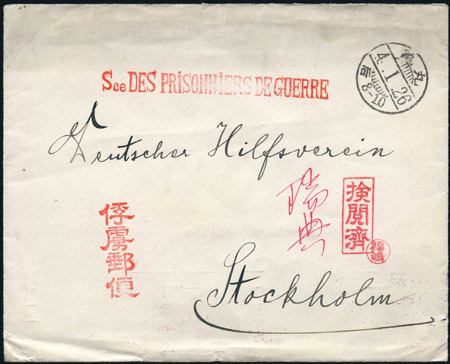 丸
4.1.26
后8-10
Sce DES PRISONNIERS DE GUERRE
Deutscher Hilfsverein
瑞典
検閲濟
俘虜郵便
Stockholm